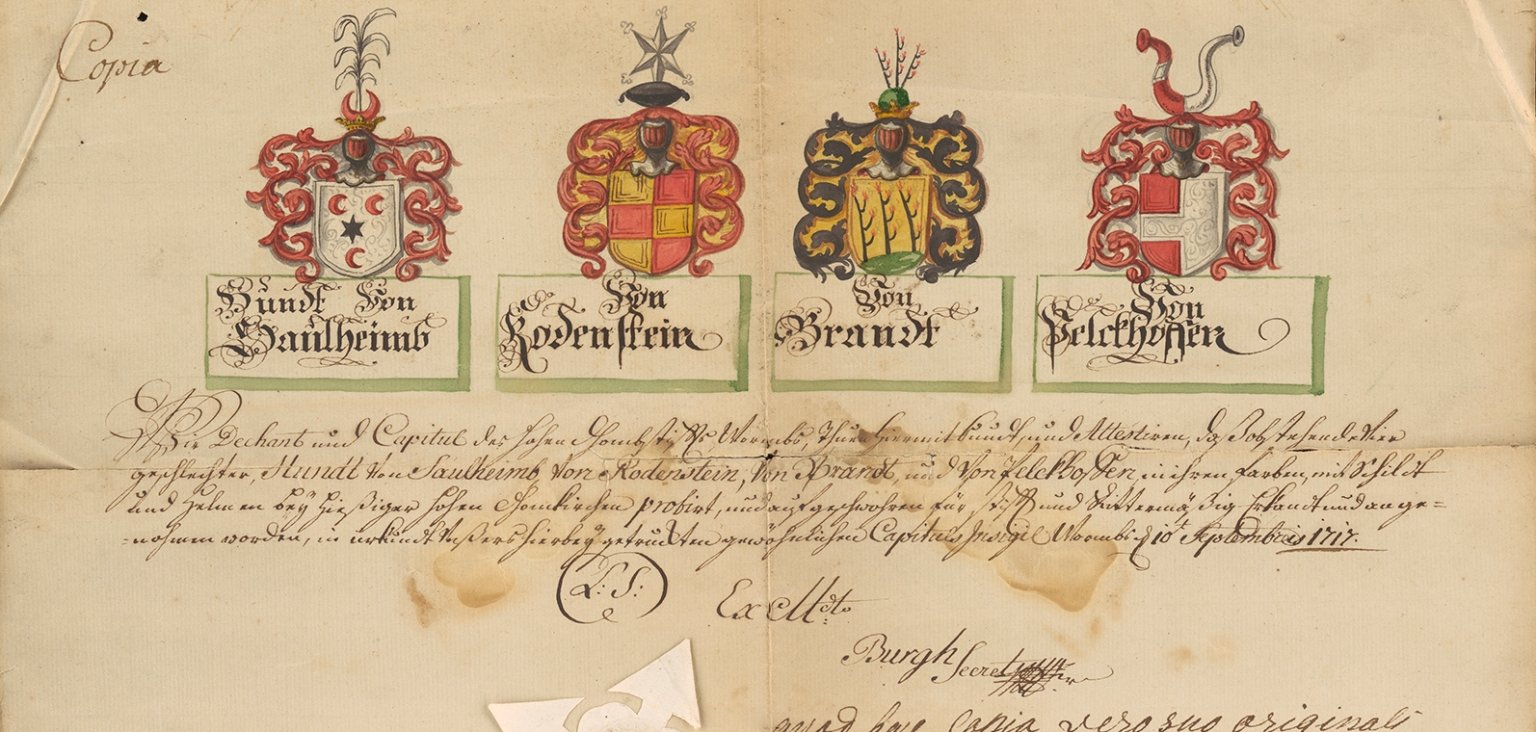 Copia
Hundt Von
Saulheimb
Von
Rodenstein
Von
Brandt
Von
Pelckhoffen
Wir Dechant und Capitul des hohen Dhombstiffts Wormbs, Thun hiermit kundt, und Attestiren, daß obstehende Vier
geschlechter, Hundt Von Saulheimb, Von Rodenstein, Von Brandt, und Von Pelckhoffen, in ihren farben, mit Schildt
und Helmen bey hießiger hohen Thomkirchen probirt, und aufgeschwohren für stiffts und Rittermäßig Erkandt und ange-
-nohmen worden, in urkundt Unßers hierbey getruckten gewöhnlichen Capituls Insigil Wormbs d 10t Septembris 1717.
L: S:
Ex Mdto
Burgh Secret
quod haec Copia vero suo originali